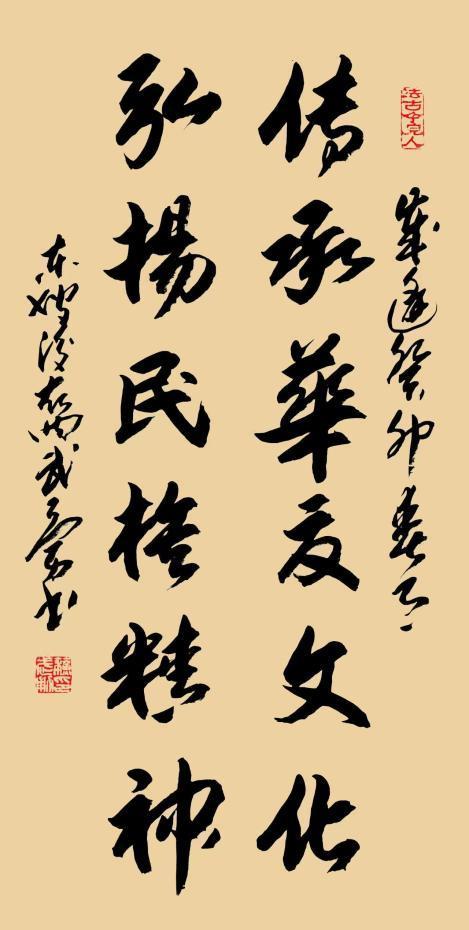 歲逢癸卯春月
傳承華夏文化
弘揚民族精神